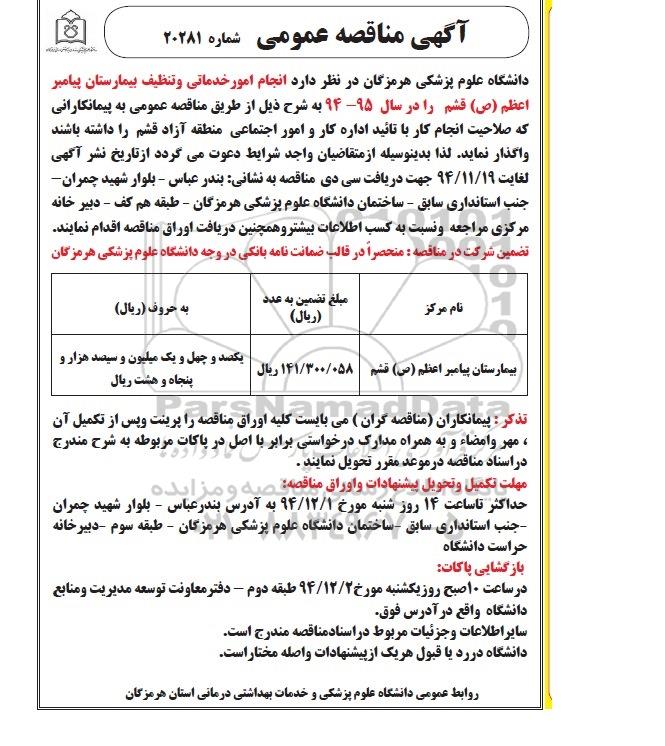 آگهی مناقصه عمومی شماره ۲۰۲۸۱
دانشگاه علوم پزشکی هرمزگان در نظر دارد انجام امورخدماتی وتنظیف بیمارستان پیامبر
اعظم (ص) قشم را در سال ۹۵- ۹۴ به شرح ذیل از طریق مناقصه عمومی به پیمانکارانی
که صلاحیت انجام کار با تائید اداره کار و امور اجتماعی منطقه آزاد قشم را داشته باشند
واگذار نماید. لذا بدینوسیله ازمتقاضیان واجد شرایط دعوت می گردد ازتاریخ نشر آگهی
لغایت ۹۴/۱۱/۱۹ جهت دریافت سی دی مناقصه به نشانی: بندر عباس - بلوار شهید چمران–
جنب استانداری سابق - ساختمان دانشگاه علوم پزشکی هرمزگان - طبقه هم کف - دبیر خانه
مرکزی مراجعه ونسبت به کسب اطلاعات بیشتروهمچنین دریافت اوراق مناقصه اقدام نمایند.
تضمین شرکت در مناقصه : منحصراً در قالب ضمانت نامه بانکی در وجه دانشگاه علوم پزشکی هرمزگان
نام مرکز
مبلغ تضمین به عدد
(ریال)
به حروف (ریال)
بیمارستان پیامبر اعظم (ص) قشم
۱۴۱/۳۰۰/۰۵۸ ریال
یکصد و چهل و یک میلیون و سیصد هزار و
پنجاه و هشت ریال
ParsNamadData
تذکر : پیمانکاران (مناقصه گران ) می بایست کلیه اوراق مناقصه را پرینت وپس از تکمیل آن
، مهر وامضاء و به همراه مدارک درخواستی برابر با اصل در پاکات مربوطه به شرح مندرج
دراسناد مناقصه درموعد مقرر تحویل نمایند .
مهلت تکمیل وتحویل پیشنهادات واوراق مناقصه:
حداکثر تاساعت ۱۴ روز شنبه مورخ ۹۴/۱۲/۱ به آدرس بندرعباس - بلوار شهید چمران
-جنب استانداری سابق -ساختمان دانشگاه علوم پزشکی هرمزگان - طبقه سوم -دبیرخانه
حراست دانشگاه
بازگشایی پاکات:
درساعت ۱۰صبح روزیکشنبه مورخ۹۴/۱۲/۲ طبقه دوم – دفترمعاونت توسعه مدیریت ومنابع
دانشگاه واقع درآدرس فوق.
سایراطلاعات وجزئیات مربوط دراسنادمناقصه مندرج است.
دانشگاه دررد یا قبول هریک ازپیشنهادات واصله مختاراست.
روابط عمومی دانشگاه علوم پزشکی و خدمات بهداشتی درمانی استان هرمزگان